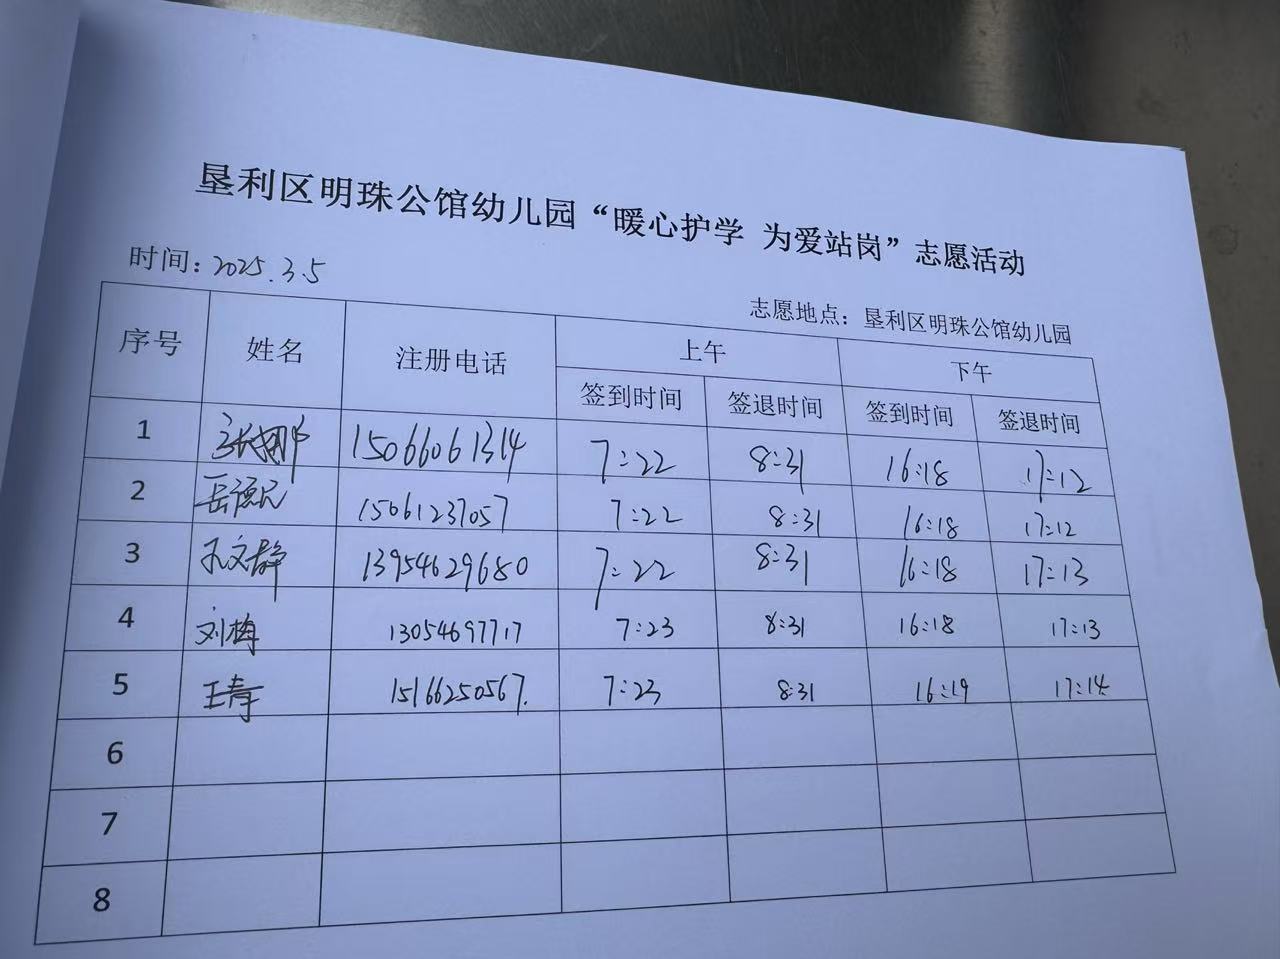 垦利区明珠公馆幼儿园“暖心护学 为爱站岗”志愿活动
时间：2025.3.5
志愿地点：垦利区明珠公馆幼儿园
序号 姓名 注册电话 上午 下午
签到时间 签退时间 签到时间 签退时间
1 张娜 15066061314 7:22 8:31 16:18 17:12
2 岳德民 15061237057 7:22 8:31 16:18 17:12
3 孔文静 13954629680 7:22 8:31 16:18 17:13
4 刘梅 13054697717 7:23 8:31 16:18 17:13
5 王青 15166250567. 7:23 8:31 16:19 17:14
6
7
8